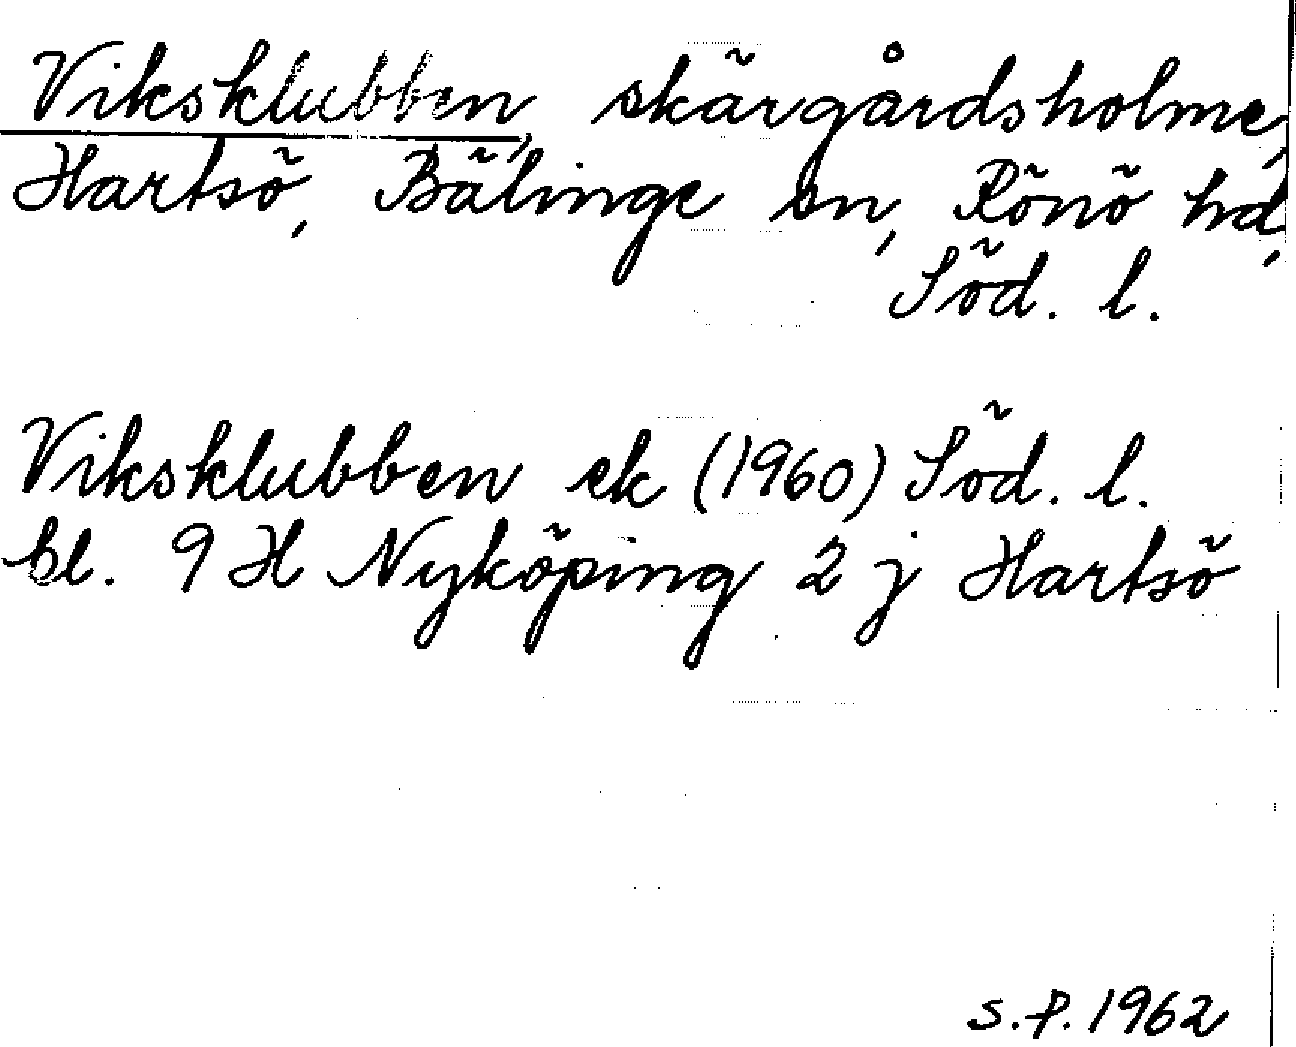 Viksklubben, skärgårdsholme,
Hartsö, Bälinge sn, Rönö hd,
Söd. l.
Viksklubben ek (1960) Söd. l.
bl. 9 H Nyköping 2 j Hartsö
S.P. 1962